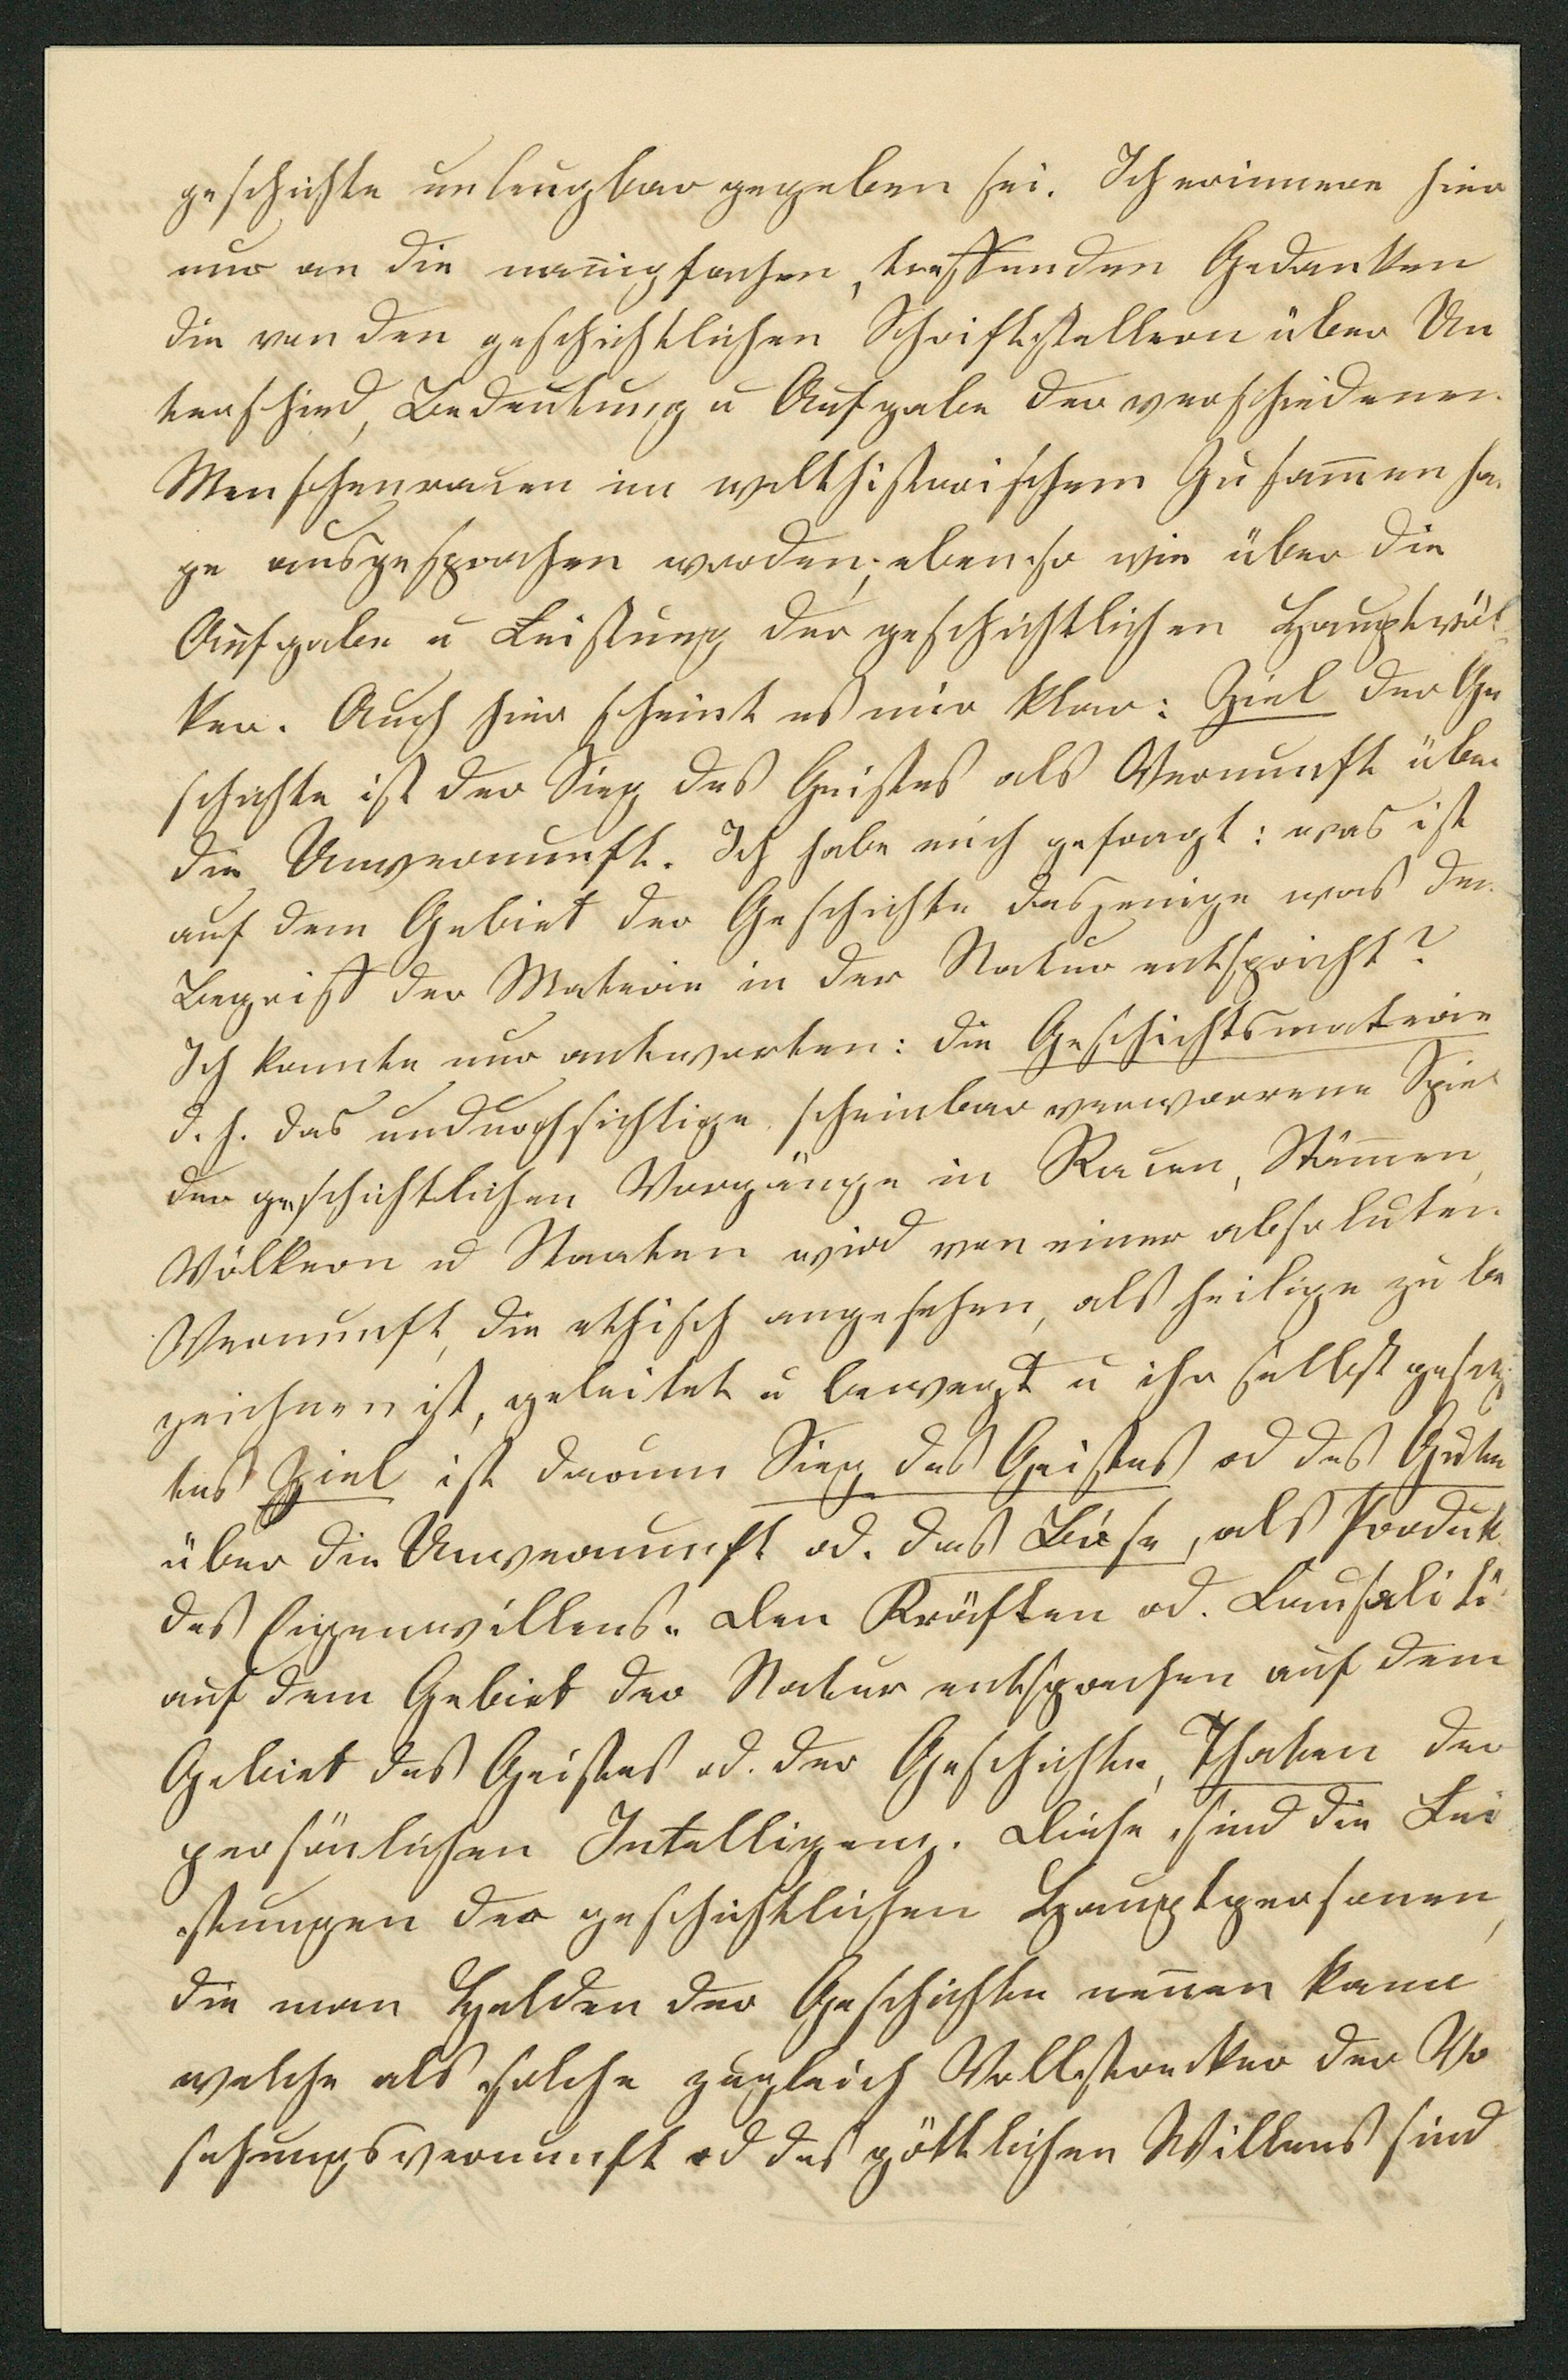 geschichte unleugbar gegeben sei. Ich erinnere hier
nur an die manigfachen, treffenden Gedanken
die von den geschichtlichen Schriftstellern über Un
terschied, Bedeutung u Aufgabe der verschiedenen
Menschenracen im welthistorischem Zusam̅enhan
ge ausgesprochen worden; ebenso wie über die
Aufgabe u Leistung der geschichtlichen Hauptvöl
ker. Auch hier scheint es mir klar: Ziel der Ge
schichte ist der Sieg des Geistes als Vernunft über
die Unvernunft. Ich habe mich gefragt: was ist
auf dem Gebiet der Geschichte dasjenige was dem
Begriff der Materie in der Natur entspricht?
Ich konnte nur antworten: die Geschichtsmaterie
d. h. das undurchsichtige scheinbar verworrene Spiel
der geschichtlichen Vorgänge in Racen, Stäm̅en,
Völkern u Staaten wird von einer absoluten
Vernunft, die ethisch angesehen, als heilige zu be
zeichnen ist, geleitet u bewegt u ihr selbst gesetz
tes Ziel ist darum Sieg des Geistes od des Guten
über die Unvernunft od. das Böse, als Produkt
des Eigenwillens. Den Kräften od. Causalitä
auf dem Gebiet der Natur entsprechen auf dem
Gebiet des Geistes od. der Geschichte, Thaten der
persönlichen Intelligenz. Diese sind die Lei
stungen der geschichtlichen Hauptpersonen,
die man Helden der Geschichte nen̅en kann
welche als solche zugleich Vollstrecker der Vor
sehungsvernunft od des göttlichen Willens sind